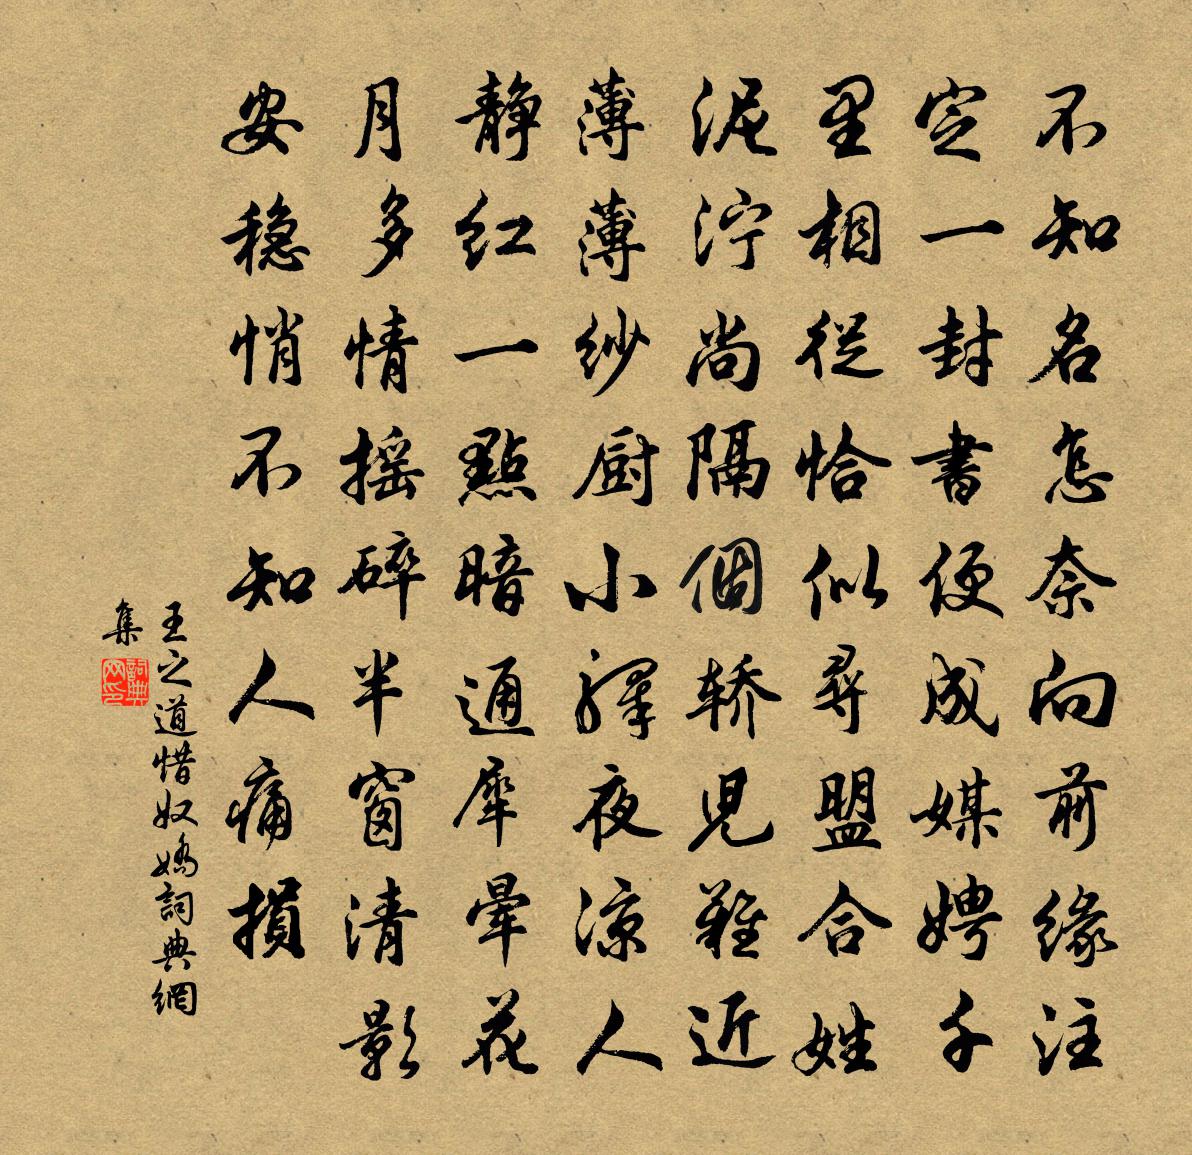 不知名怎奈向前缘注
定一封書便成媒娉千
里相從恰似尋盟合姓
泥泞尚隔個轿児難近
薄薄纱厨小驛夜凉人
静红一點暗通犀暈花
月多情摇碎半窗清影
安穏悄不知人痛損
王之道惜奴嬌詞典網
集
詞典网印